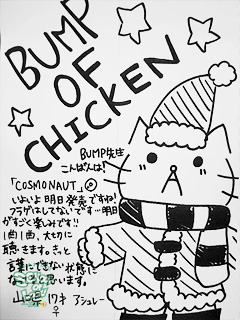 BUMP
OF
CHICKEN
BUMP先生
こんばんは!
「COSMONAUT」
いよいよ明日発売ですね!
フラゲはしてないです…明日
がすごく楽しみです!!
1曲1曲、大切に
聴きます。きっと
言葉にできない状態に
なると思います。
山口県 17才 ♀